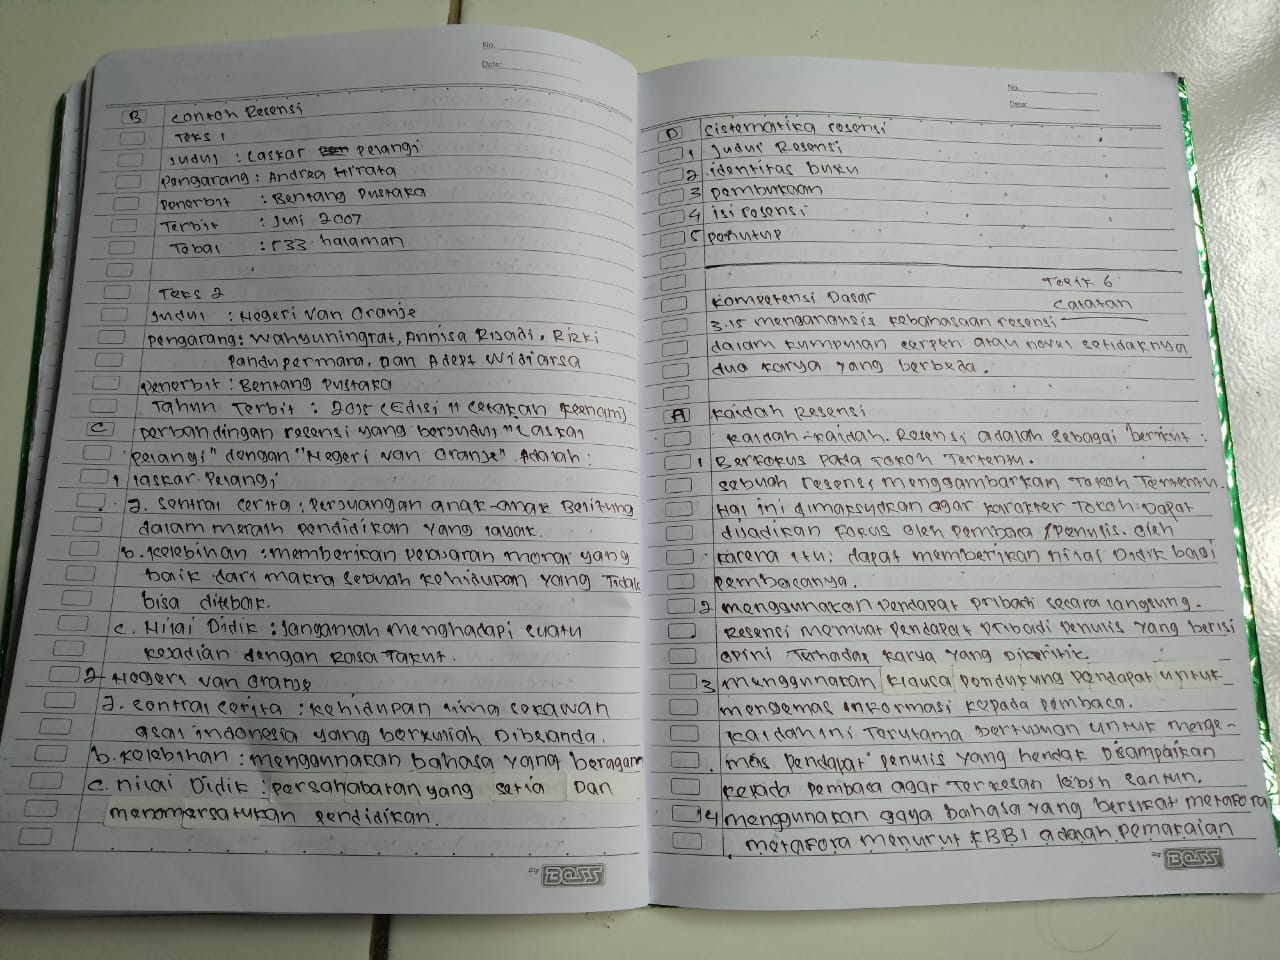 No.
Date:
B Contoh Resensi
Teks 1
Judul : Laskar Pelangi
Pengarang : Andrea Hirata
Penerbit : Bentang Pustaka
Terbit : Juni 2007
Tebal : 533 halaman
Teks 2
Judul : Negeri Van Oranje
Pengarang : Wahyuningrat, Annisa Risadi, Rizki
Pandupermana, Dan Adept Widiarsa
Penerbit : Bentang Pustaka
Tahun Terbit : 2015 (Edisi 11 cetakan Keenam)
C perbandingan resensi yang berjudul "Laskar
Pelangi" dengan "Negeri Van Oranje" Adalah :
1 laskar Pelangi
a. Sentral cerita : Perjuangan anak-anak Belitung
dalam meraih pendidikan yang layak.
b. Kelebihan : memberikan pelajaran moral yang
baik dari makna sebuah kehidupan yang Tidak
bisa ditebak.
c. Nilai Didik : Janganlah menghadapi suatu
kejadian dengan Rasa Takut.
2 Negeri Van Oranje
a. sentral cerita : Kehidupan lima sekawan
asal indonesia yang berkuliah Dibelanda.
b. kelebihan : menggunakan bahasa yang beragam
c. nilai Didik : persahabatan yang setia Dan
menomersatukan pendidikan.
Big BOSS
No.
Date:
D Sistematika resensi
1 Judul Resensi
2 identitas buku
3 pembukaan
4 isi resensi
5 penutup
Topik 6
Kompetensi Dasar Catatan
3.15 menganalisis kebahasaan resensi
dalam kumpulan cerpen atau novel setidaknya
dua karya yang berbeda.
A Kaidah Resensi
Kaidah-kaidah Resensi adalah sebagai berikut :
1 Berfokus Pada Tokoh Tertentu.
sebuah resensi menggambarkan Tokoh Tertentu.
Hal ini dimaksudkan agar karakter Tokoh Dapat
dijadikan Fokus oleh pembaca / Penulis. oleh
karena itu, dapat memberikan nilai Didik bagi
pembacanya.
2 menggunakan Pendapat pribadi secara langsung.
Resensi memuat pendapat pribadi penulis yang berisi
opini Terhadap Karya yang Dikritik.
3 menggunakan Klausa pendukung pendapat untuk
mengemas informasi kepada pembaca.
Kaidah ini Terutama bertujuan untuk menge-
mas pendapat penulis yang hendak Disampaikan
kepada pembaca agar Terkesan lebih santun.
4 menggunakan gaya bahasa yang bersifat metafora
metafora menurut KBBI adalah pemakaian
Big BOSS